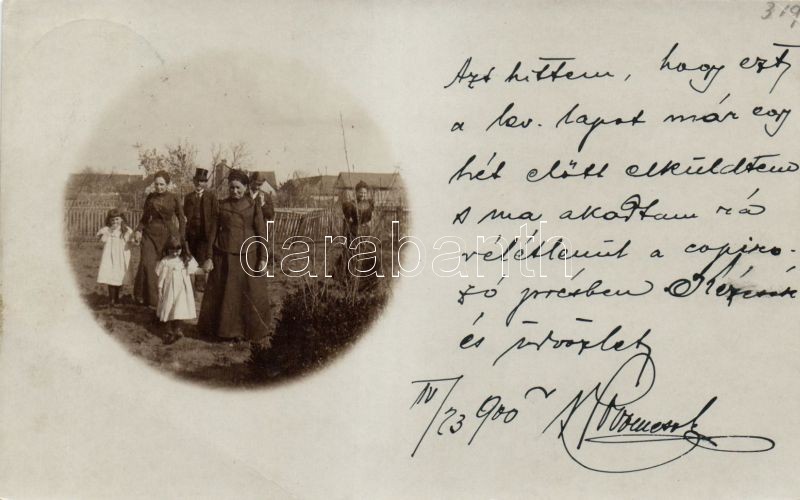 319
Azt hittem, hogy ezt
a lev. lapot már egy
hét előtt elküldtem
s ma akadtam rá
véletlenül a copiro-
zó présben
és üdvözlet
IV/23 900
darabanth.com